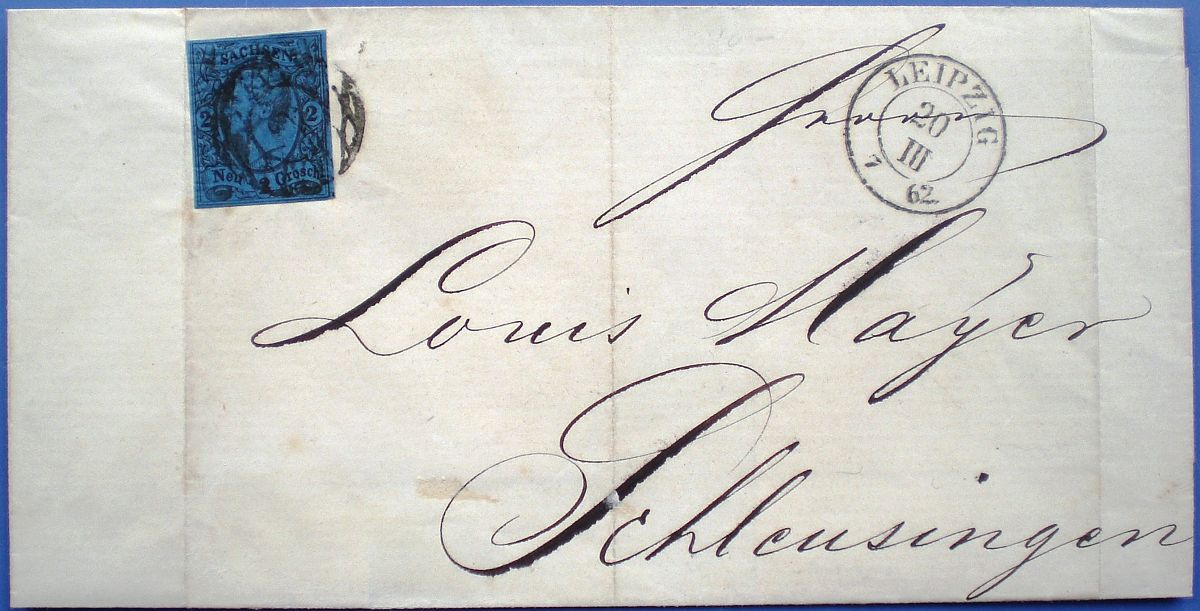 SACHSEN
2 2
Neu 2 Grosch.
LEIPZIG
20
III
7
62
Herrn
Louis Mayer
Schleusingen